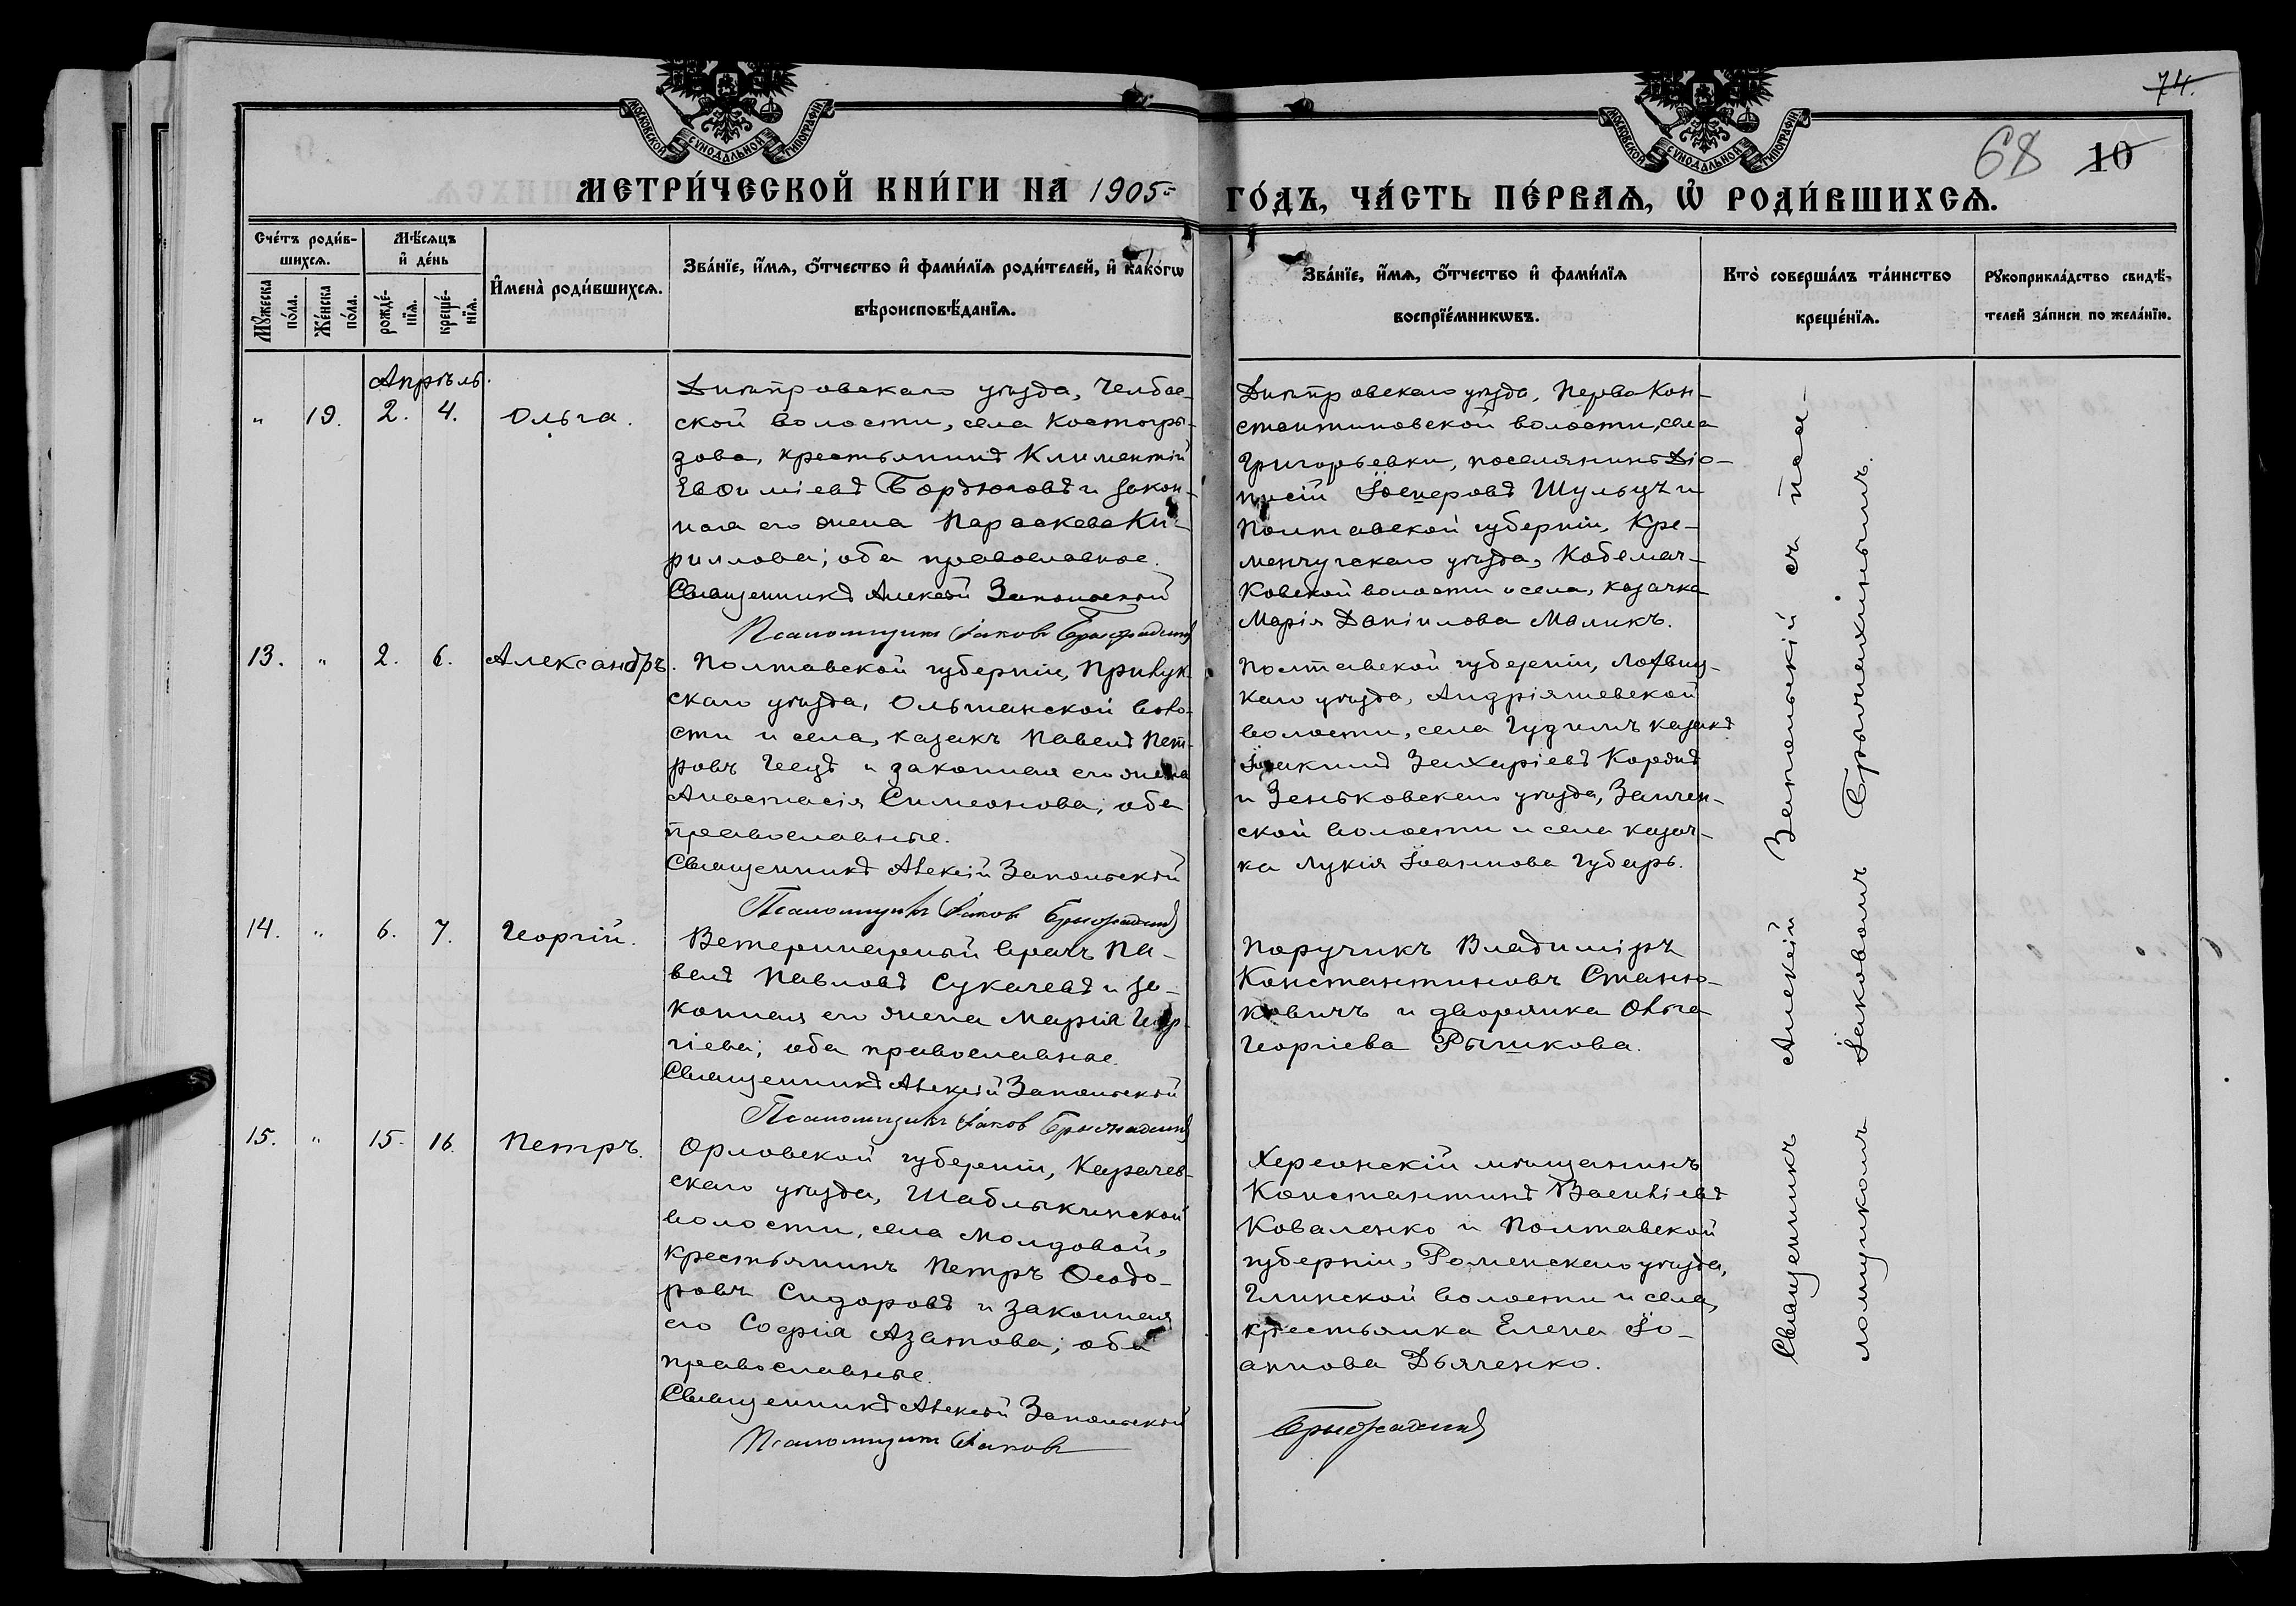 74.
68 10
МОСКОВСКОЙ СѴНОДАЛЬНОЙ ТИПОГРАФІИ
МОСКОВСКОЙ СѴНОДАЛЬНОЙ ТИПОГРАФІИ
МЕТРИ́ЧЕСКОЙ КНИ́ГИ НА 1905 ГО́ДЪ, ЧА́СТЬ ПЕ́РВАѦ, Ѽ РОДИ́ВШИХСѦ.
Сче́тъ роди́в-
шихсѧ.
Мѣ́сѧцъ
и҆ де́нь
Мꙋ́жеска по́ла.
Же́нска по́ла.
рожде́-
нїѧ.
креще́-
нїѧ.
И҆мена̀ роди́вшихсѧ.
Зва́нїе, и҆́мѧ, ѻ҆́тчество и҆ фами́лїѧ роди́телей, и҆ како́гѡ
вѣроисповѣ́данїѧ.
Зва́нїе, и҆́мѧ, ѻ҆́тчество и҆ фами́лїѧ
воспрїе́мникѡвъ.
Кто̀ соверша́лъ та́инство
креще́нїѧ.
Рꙋкоприкла́дство свидѣ́-
телей за́писи по жела́нїю.
Апрѣль.
" 19. 2. 4. Ольга.
Днѣпровскаго уѣзда, Челбас-
ской волости, села Костогры-
зова, крестьянинъ Климентій
Евѳиміевъ Бордюговъ и закон-
ная его жена Параскева Ки-
риллова; оба православные.
Священникъ Алексій Запольскій
Псаломщикъ Іаковъ
Днѣпровскаго уѣзда, Перво Кон-
стантиновской волости, села
Григорьевки, поселянинъ Діо-
нисій Іосифовъ Шульцъ и
Полтавской губерніи, Кре-
менчугскаго уѣзда,
ковской волости и села, казачка
Марія Даніилова Маликъ.
13. " 2. 6. Александръ.
Полтавской губерніи, Прилук-
скаго уѣзда, Ольшанской воло-
сти и села, казакъ Павелъ Пет-
ровъ Геецъ и законная его жена
Анастасія Симеонова; оба
православные.
Священникъ Алексій Запольскій
Псаломщикъ Іаковъ
Полтавской губерніи, Лохвиц-
каго уѣзда, Андріяшевской
волости, села Гудимъ казакъ
Іоакимъ Захаріевъ
и Зеньковскаго уѣзда,
ской волости и села казач-
ка Лукія Іоаннова Губарь.
14. " 6. 7. Георгій.
Ветеринарный врачъ Па-
велъ Павловъ Сукачевъ и за-
конная его жена Марія Геор-
гіева; оба православные.
Священникъ Алексій Запольскій
Псаломщикъ Іаковъ
Поручикъ Владиміръ
Константиновъ Станю-
ковичъ и дворянка Ольга
Георгіева Рышкова.
15. " 15. 16. Петръ.
Орловской губерніи, Карачев-
скаго уѣзда, Шаблыкинской
волости, села Молдовой,
крестьянинъ Петръ Ѳеодо-
ровъ Сидоровъ и законная
его Софія Азатова; оба
православные.
Священникъ Алексій Запольскій
Псаломщикъ Іаковъ
Херсонскій мѣщанинъ
Константинъ Василіевъ
Коваленко и Полтавской
губерніи, Роменскаго уѣзда,
Глинской волости и села,
крестьянка Елена Іо-
аннова Дьяченко.
Священникъ Алексій Запольскій съ пса-
ломщикомъ Іаковомъ